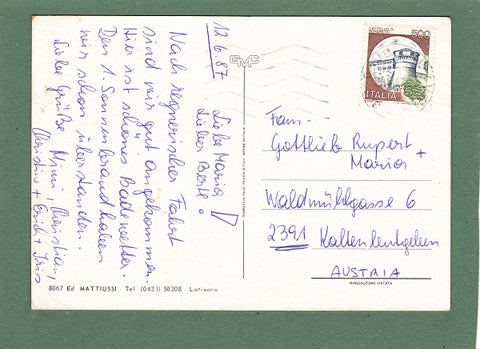 12.6.87
Liebe Maria,
lieber Bertl!
Nach regnerischer Fahrt
sind wir gut angekommen.
Hier ist schönes Badewetter.
Den 1. Sonnenbrand haben
wir schon überstanden.
Liebe Grüße Mimi, Christian,
Christine + Erich + Iris
8067 Ed MATTIUSSI Tel (0431) 50308 - Latisana
GMC
CASTELLO DI
500
ITALIA
Fam.
Gottlieb Rupert +
Maria
Waldmühlgasse 6
2391 Kaltenleutgeben
AUSTRIA
RIPRODUZIONE VIETATA